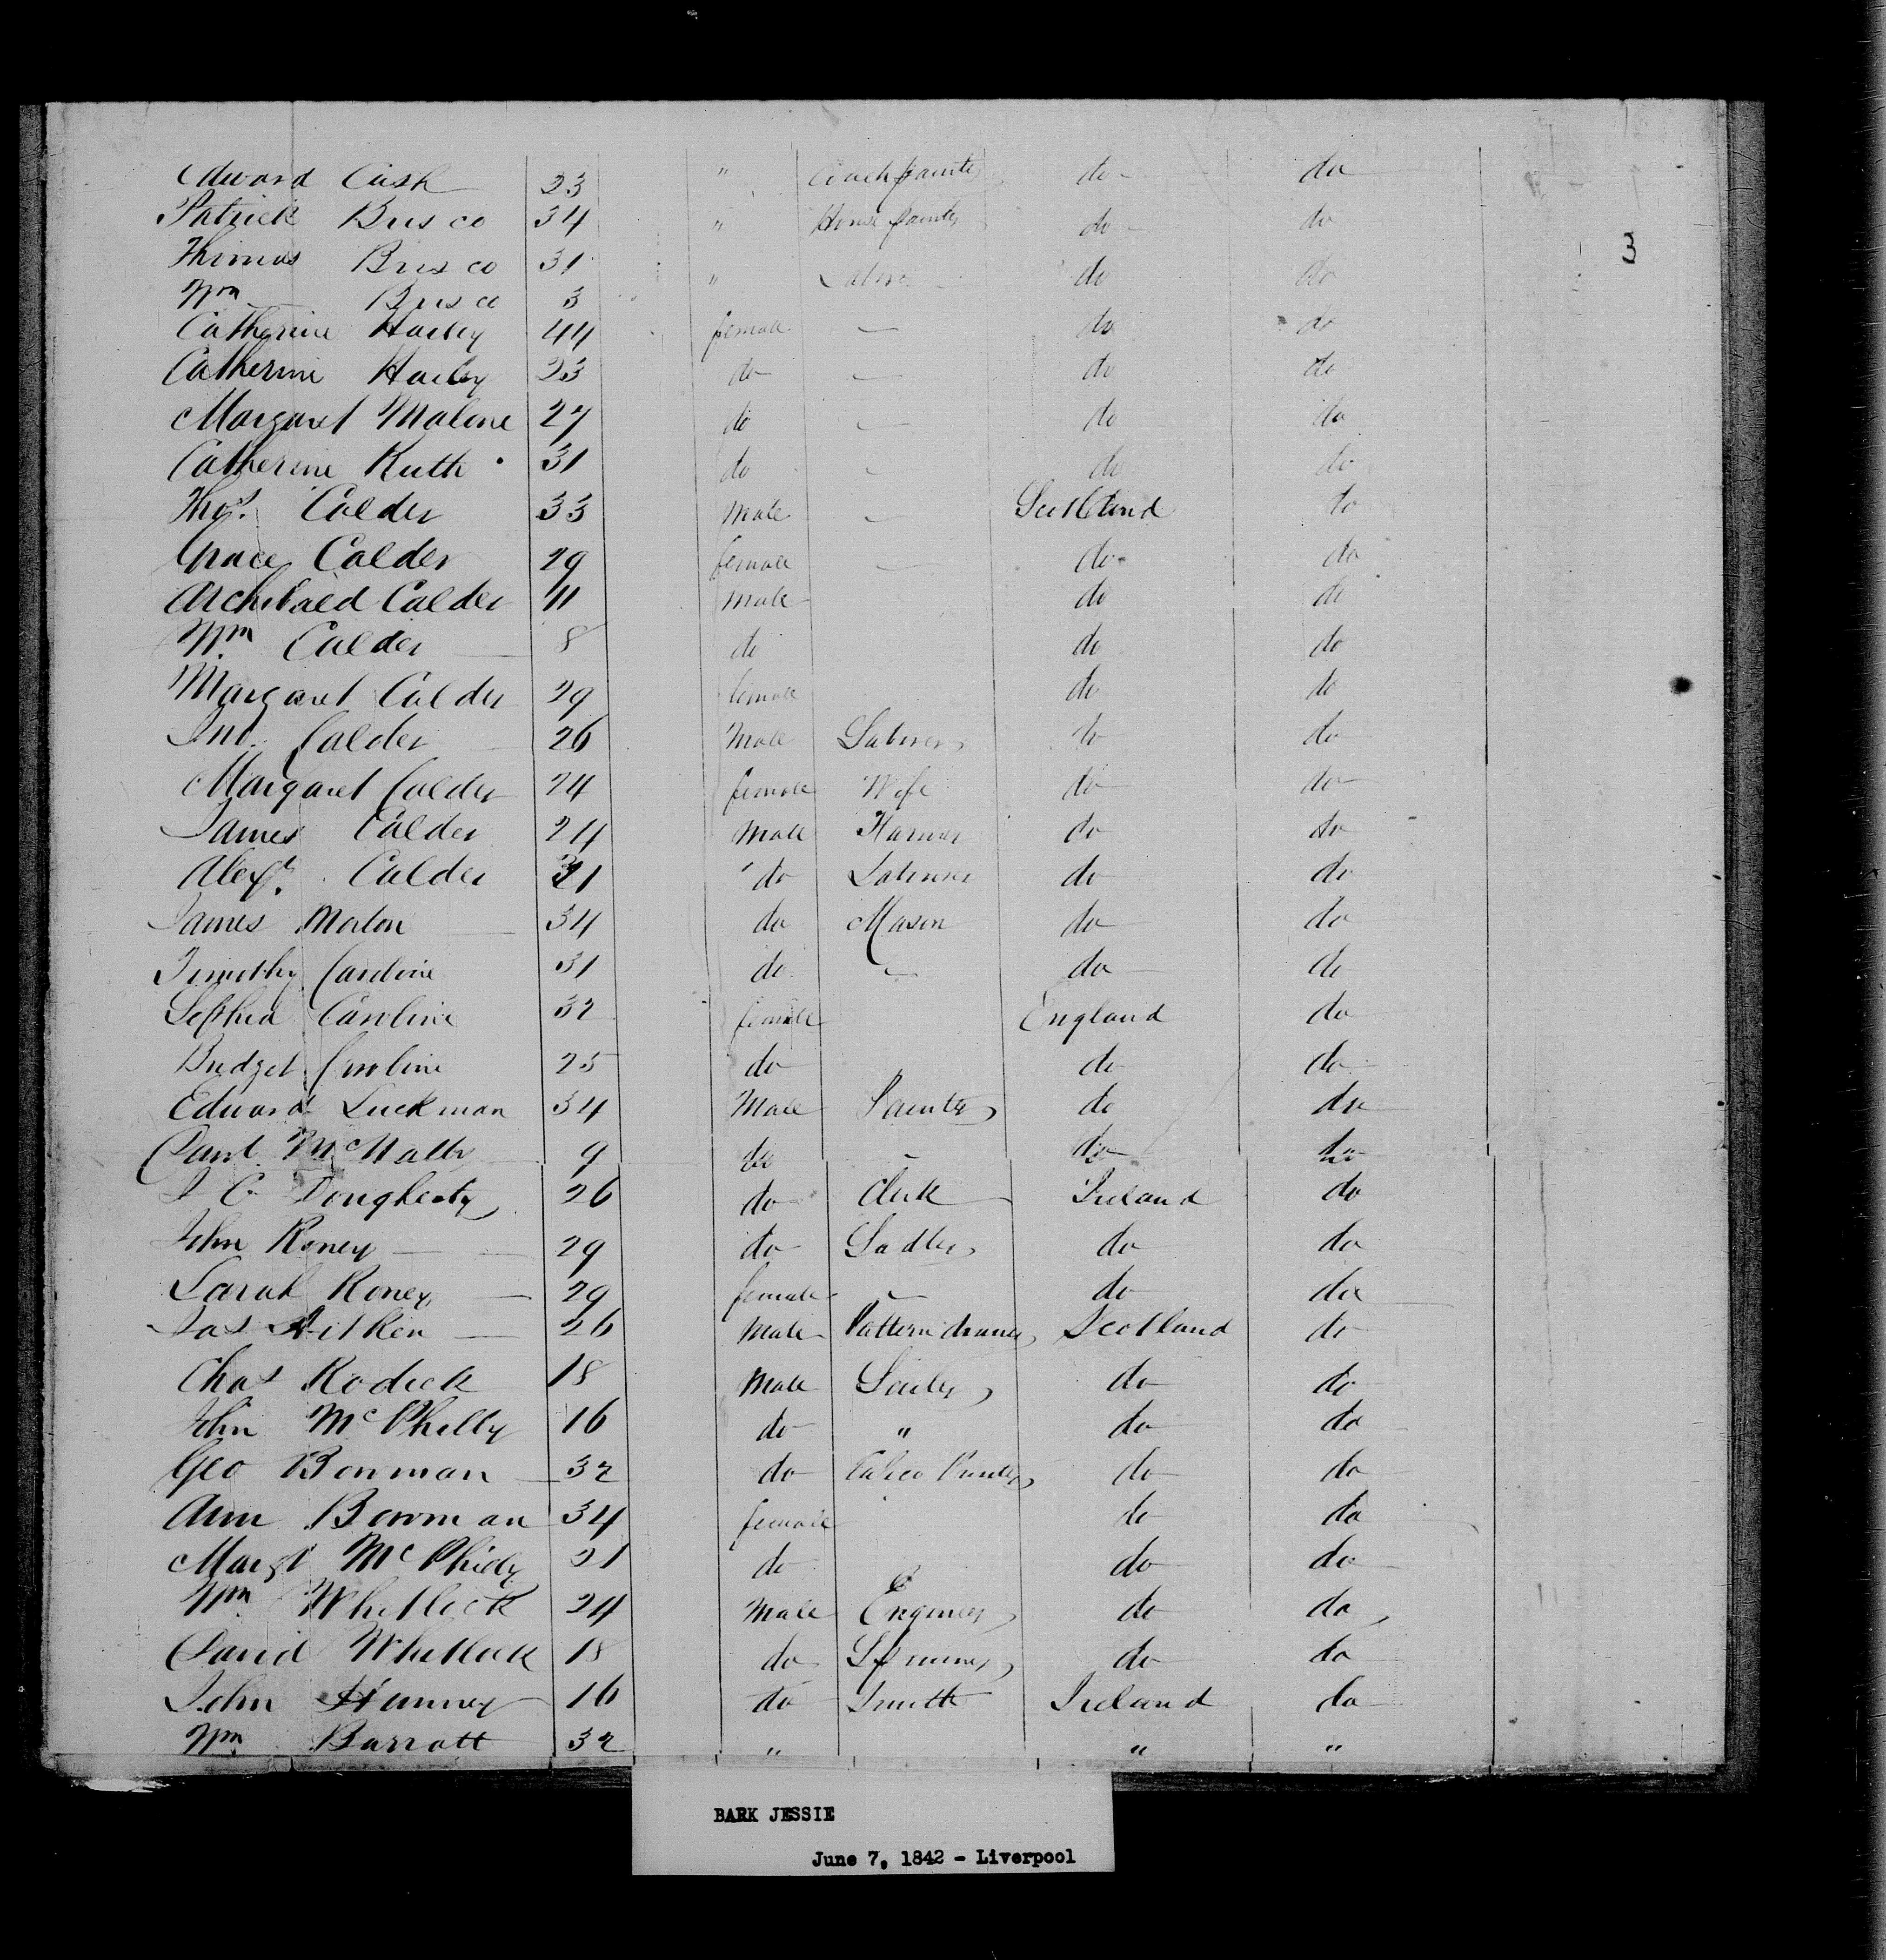 Edward Cash 23 " Coach painter do do
Patrick Brisco 34 " House painter do do
3
Thomas Brisco 31 " Labore do do
Wm Brisco 3
Catherine Harley 44 female — do do
Catherine Harley 23 do — do do
Margaret Malone 27 do — do do
Catherine Ruth 31 do — do do
Thos. Calder 33 Male — Scotland do
Grace Calder 29 female — do do
Archibald Calder 11 male do do
Wm Calder 8 do do do
Margaret Calder 29 female do do
Jno. Calder 26 Male Laborer do do
Margaret Calder 24 female Wife do do
James Calder 24 Male Farmer do do
Alexr. Calder 21 do Laborer do do
James Morton 34 do Mason do do
Timothy Caroline 31 do — do do
Sophia Caroline 32 female England do
Bridget Caroline 25 do do do
Edward Luckman 34 Male Painter do do
9 do — do do
J C Dougherty 26 do Clerk Ireland do
John Roney 29 do Sadler do do
Sarah Roney 29 female — do do
Jas Aitken 26 Male Pattern drawer Scotland do
Chas Rodick 18 Male do do
John McPhelly 16 do " do do
Geo Bowman 32 do Calico Printer do do
Ann Bowman 34 female do do
Margt McPhelly 21 do do do
Wm Whitlock 24 Male Engineer do do
David Whitlock 18 do Spinner do do
John Hanney 16 do Smith Ireland do
Wm Barratt 32 " " "
BARK JESSIE
June 7, 1842 - Liverpool